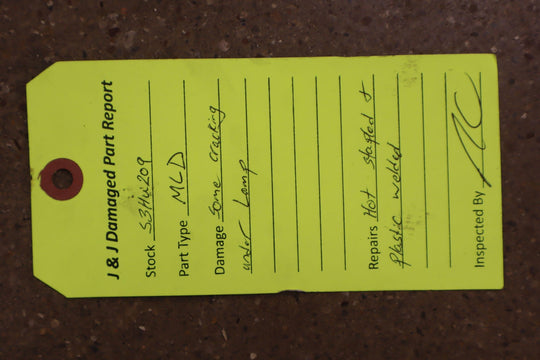 J & J Damaged Part Report
Stock S3HW209
Part Type MLD
Damage some cracking
under Lamp
Repairs Hot stapled +
plastic welded
Inspected By